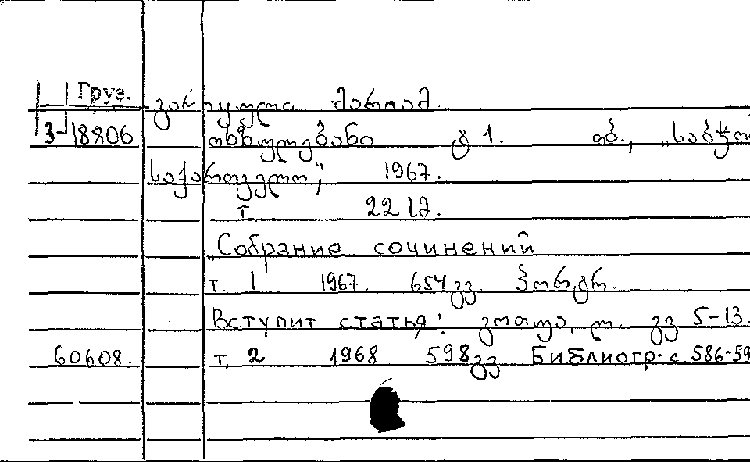 Груз. გარიყულა მარიამ.
3-18806 თხზულებანი ტ 1. თბ., „საბჭოთა
საქართველო“, 1967.
т. 22 სმ.
Собрание сочинений
т. 1 1967. 654 გვ. პორტრ.
Вступит статья: გვ 5-13.
60608. т. 2 1968 598 გვ Библиогр. с 586-59